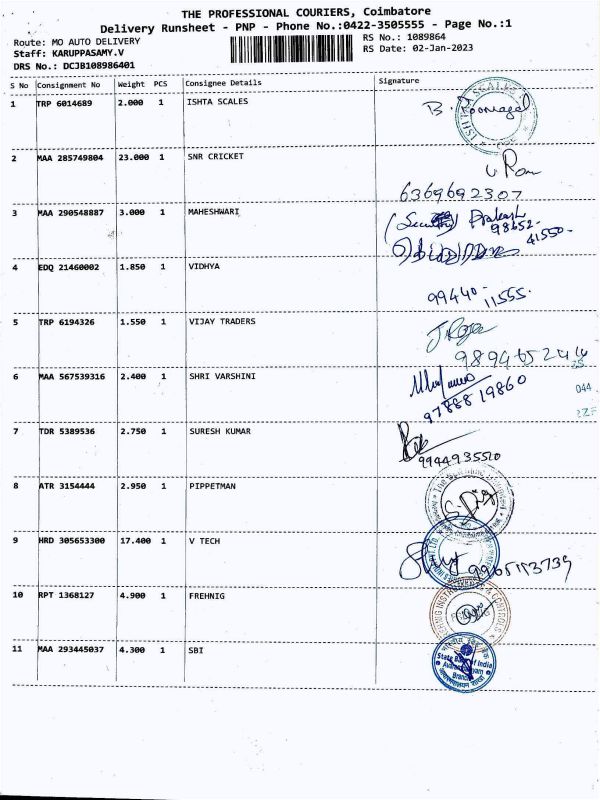 THE PROFESSIONAL COURIERS, Coimbatore
Delivery Runsheet - PNP - Phone No.:0422-3505555 - Page No.:1
Route: MO AUTO DELIVERY
RS No.: 1089864
Staff: KARUPPASAMY.V
RS Date: 02-Jan-2023
DRS No.: DCJB108986401
S No Consignment No Weight PCS Consignee Details Signature
1 TRP 6014689 2.000 1 ISHTA SCALES
2 MAA 285749804 23.000 1 SNR CRICKET
6369692307
3 MAA 290548887 3.000 1 MAHESHWARI
(Security) Prakash
98652-
41550-
4 EDQ 21460002 1.850 1 VIDHYA
99440-11555-
5 TRP 6194326 1.550 1 VIJAY TRADERS
J. Raja
6 MAA 567539316 2.400 1 SHRI VARSHINI
9788819860
044
7 TDR 5389536 2.750 1 SURESH KUMAR
9944935510
8 ATR 3154444 2.950 1 PIPPETMAN
9 HRD 305653300 17.400 1 V TECH
10 RPT 1368127 4.900 1 FREHNIG
11 MAA 293445037 4.300 1 SBI
State Bank of India
Branch